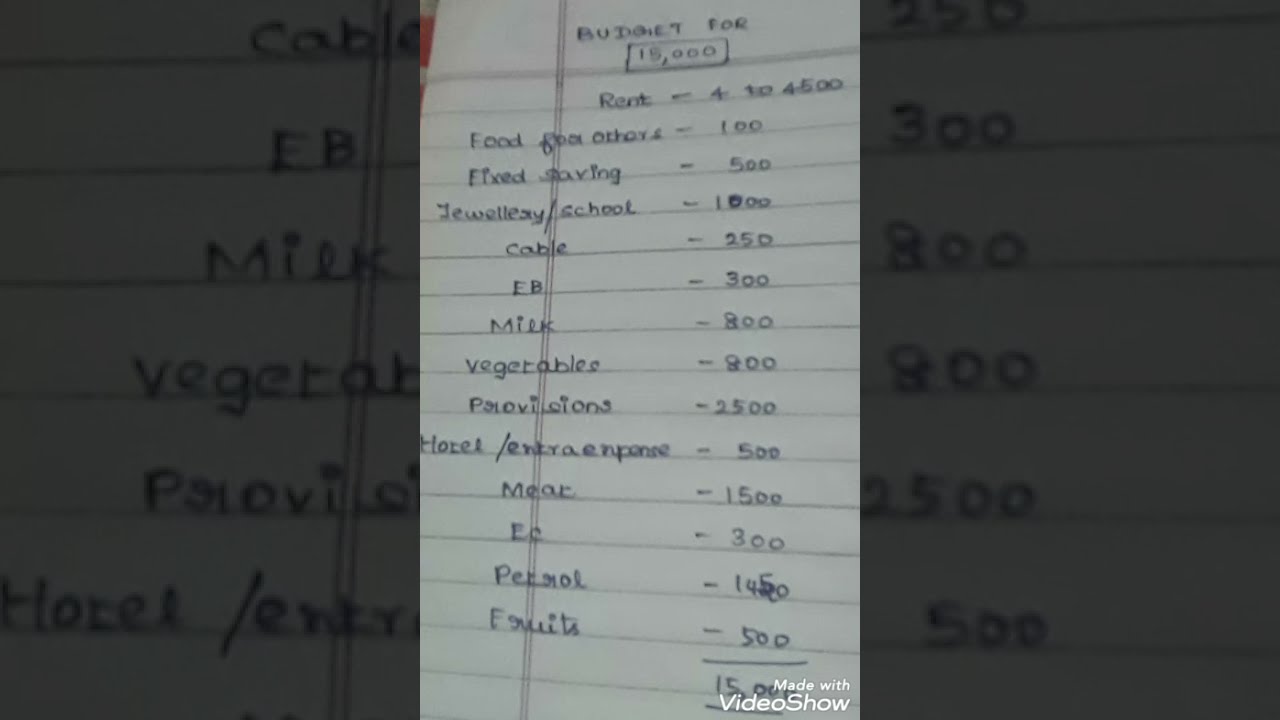 BUDGET FOR
15,000
Rent - 4 to 4500
Food for others - 100
Fixed saving - 500
Jewellery/school - 1000
Cable - 250
EB - 300
Milk - 800
Vegetables - 800
Provisions - 2500
Hotel /entraenpense - 500
Meat - 1500
EC - 300
Petrol - 1450
Fruits - 500
15,000
Made with
VideoShow